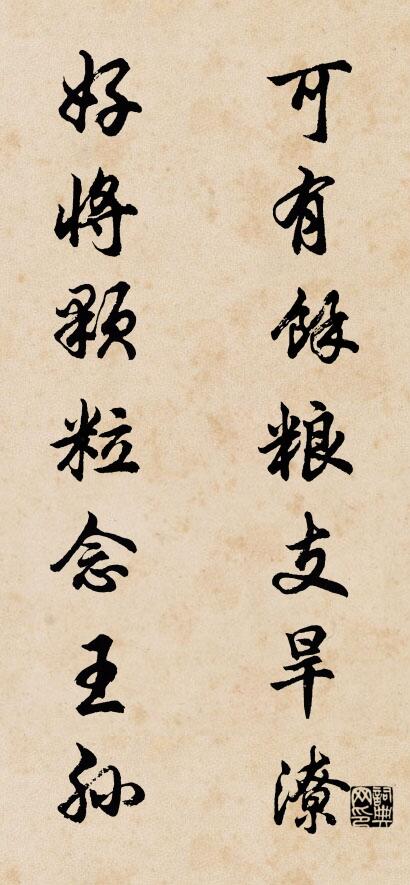 可有餘粮支旱潦
好将颗粒念王孙
詞典网印